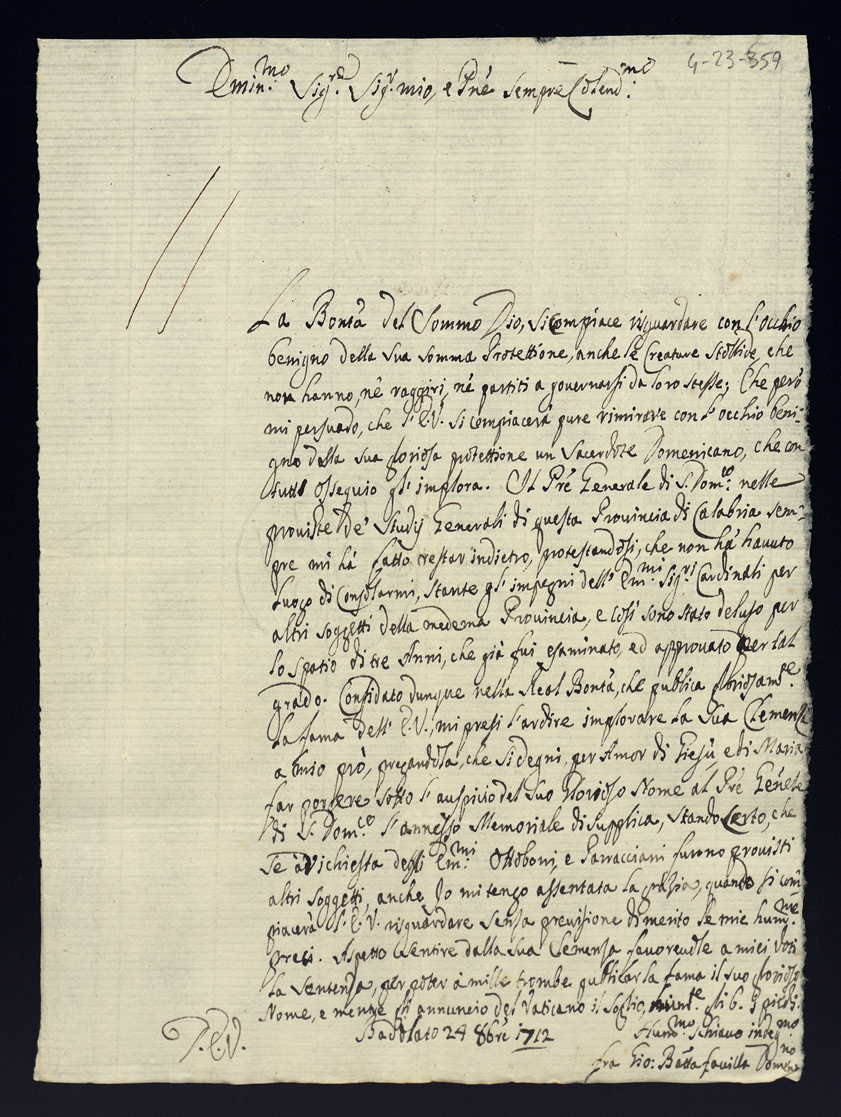 4-23-859
Emin.mo Sig.re Sig.r mio, e Pn̄e sempre Colend.mo
La Bontà del Sommo Dio, si compiace risguardare con l'occhio
benigno della sua somma Protettione, anche le Creature Stolide, che
non hanno, nè raggiri, nè partiti a governarsi da loro stesse; Che però
mi persuado, che l'E.V. si compiacerà pure rimirare con l'occhio beni-
gno della sua gloriosa protettione un Sacerdote Domenicano, che con
tutt'ossequio gl'implora. Il Prē Generale di S. Dom.co nelle
proviste de' Studij Generali di questa Provincia di Calabria sem-
pre mi hà fatto restar indietro, protestandosi, che non hà havuto
luogo di Consolarmi, stante gl'impegni dell'Em.mi Sig.ri Cardinali per
altri soggetti della medema Provincia, e così sono stato deluso per
lo spatio di tre Anni, che già fui esaminato, ed approvato per tal
grado. Confidato dunque nella Real Bontà, che publica gloriosam.te
la fama dell'E.V., mi presi l'ardire implorare la sua Clemenza
a mio prò, pregandola, che si degni, per Amor di Giesù, e di Maria
far porgere sotto l'auspicio del suo glorioso Nome al Prē Gen̄ele
di S. Dom.co l'annesso Memoriale di supplica, stando Certo, che
se à richiesta degli Em.mi Ottoboni, e Parracciani furono provisti
altri soggetti, anche Io mi tengo assentata la grazia, quando si com-
piacerà l'E.V. risguardare senza previsione di merito le mie hum.me
preci. Aspetto sentire dalla sua Clemenza favorevole a miei voti
la sentenza, per poter à mille trombe publicar la fama il suo glorioso
Nome, e mentre li annuncio del Vaticano il soglio, li b. i piedi.
P.E.V.
Badolato 24 8bre 1712
Hum.mo schiavo
fra Gio: Batta favilla Domen.no